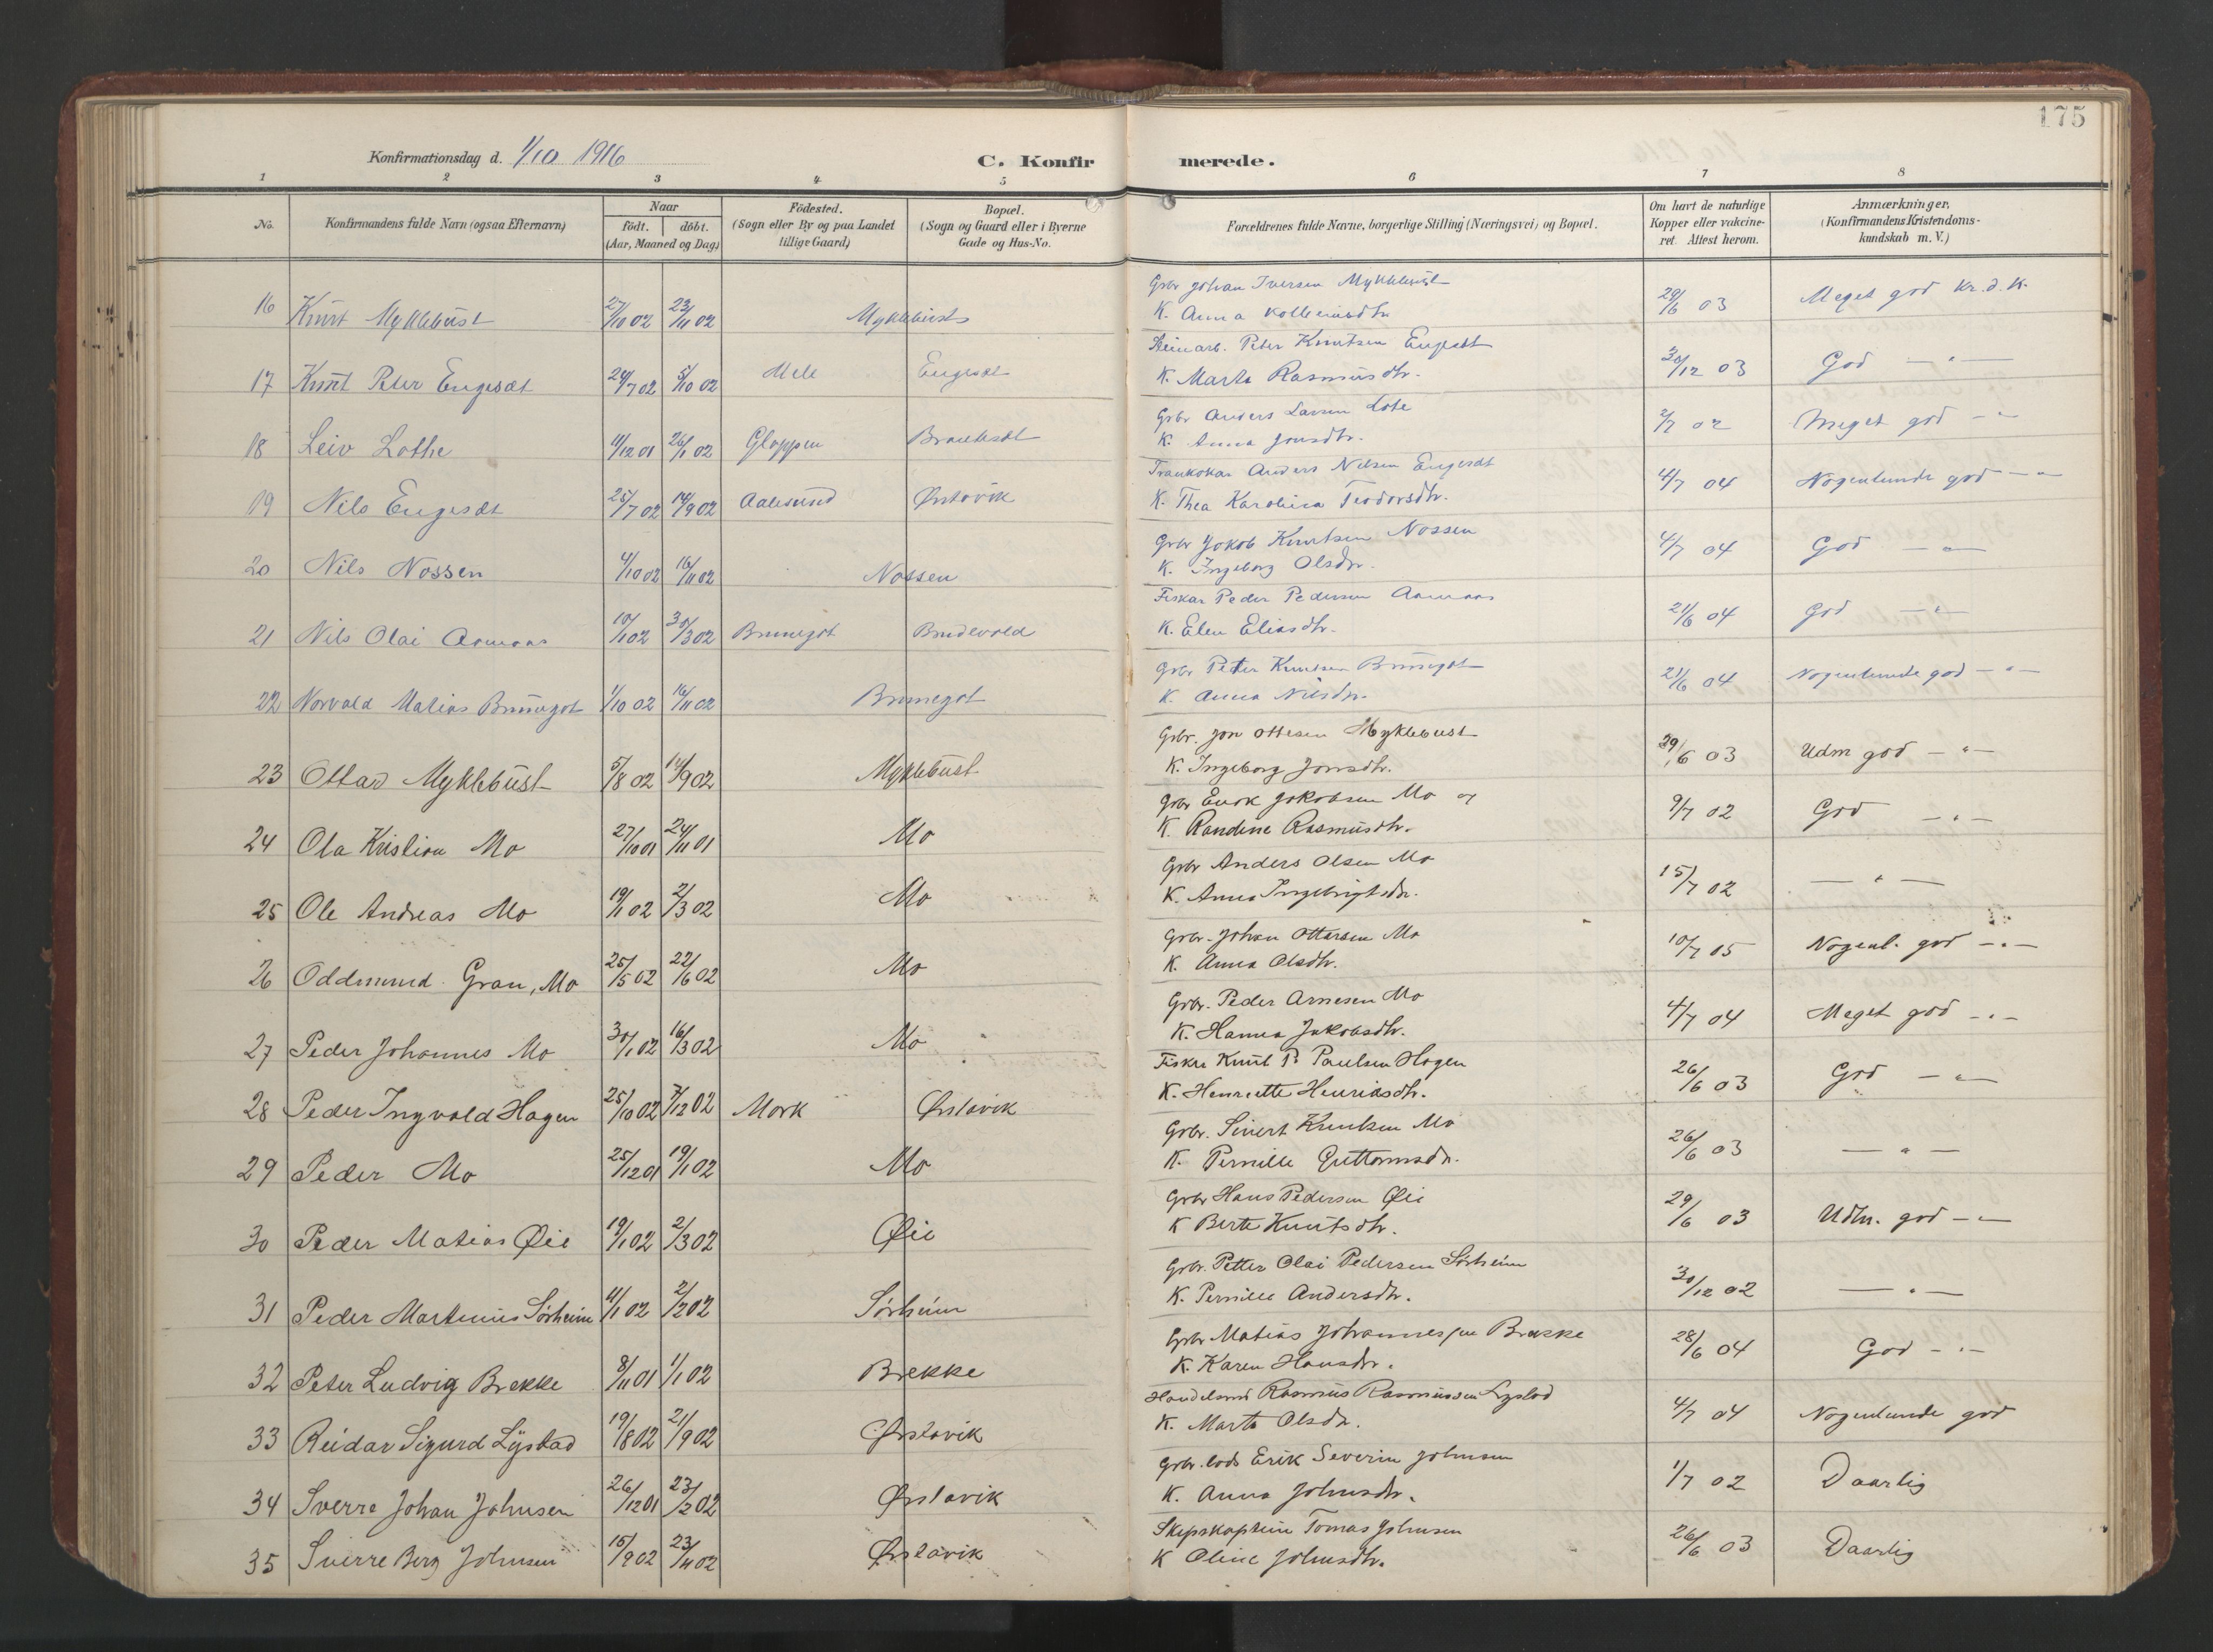 175
Konfirmationsdag d. 1/10 1916
C. Konfirmerede.
1 2 3 4 5 6 7 8
No.
Konfirmandens fulde Navn (ogsaa Efternavn)
Naar
født. døbt.
(Aar, Maaned og Dag)
Födested.
(Sogn eller By og paa Landet
tillige Gaard)
Bopæl.
(Sogn og Gaard eller i Byerne
Gade og Hus-No.
Forældrenes fulde Navne, borgerlige Stilling (Næringsvei) og Bopæl.
Om havt de naturlige
Kopper eller vakcine-
ret. Attest herom.
Anmærkninger.
(Konfirmandens Kristendoms-
kundskab m. V.)
16 Knut Myklebust 27/10 02 23/11 02 Myklebust
Grbr Johan Iversen Myklebust
K. Anna 29/6 03 Meget god kr.d.k.
17 Knut Peter Engeset 24/7 02 5/10 02 Mele Engeset
Steinarb. Peter Knutsen Engeset
K. Marta Rasmusdtr. 30/12 03 God — " —
18 Leiv Lothe 11/12 01 26/1 02 Gloppen
Grbr Anders Larsen Lote
K. Anna Jonsdtr. 2/7 02 Meget god — "
19 Nils Engeset 25/7 02 14/9 02 Aalesund Ørstavik
Trankokar Anders Nilsen Engeset
K. Thea Karolina Teodorsdtr. 4/7 04 Nogenlunde god — "
20 Nils Nossen 4/10 02 16/11 02 Nossen
Grbr Jokob Knutsen Nossen
K. Ingeborg Olsdtr. 4/7 04 God — " —
21 Nils Olai Aamaas 10/1 02 30/3 02 Brunegot Brudevold
Fiskar Peder Pedersen Aamaas
K. Elen Eliasdtr. 21/6 04 God — " —
22 Norvald Matias Brunegot 1/10 02 16/11 02 Brunegot
Grbr Peter Knutsen Brunegot
K. Anna Nilsdtr. 21/6 04 Nogenlunde god — " —
23 Ottar Myklebust 5/8 02 14/9 02 Myklebust
Grbr. Jon Ottesen Myklebust
K. Ingeborg Jonsdtr. 29/6 03 Udm god — " —
24 Ola Kristian Mo 27/10 01 24/11 01 Mo
Grbr Enok Jokobsen Mo og
K. Randine Rasmusdtr. 9/7 02 God — " —
25 Ole Andreas Mo 19/1 02 2/3 02 Mo
Grbr Anders Olsen Mo
K. Anna Ingebrigtsdtr. 15/7 02 — " —
26 Oddmund Gran, Mo 25/5 02 22/6 02 Mo
Grbr. Johan Ottarsen Mo
K. Anna Olsdtr. 10/7 05 Nogenl. god — " —
27 Peder Johannes Mo 30/1 02 16/3 02 Mo
Grbr. Peder Arnesen Mo
K. Hanna Jakobsdtr. 4/7 04 Meget god — " —
28 Peder Ingvald Hagen 25/10 02 7/12 02 Mork Ørstavik
Fisker Knut P. Paulsen Hagen
K. Henriette Henriksdtr. 26/6 03 God — " —
29 Peder Mo 25/12 01 19/1 02 Mo
Grbr. Sivert Knutsen Mo
K. Pernille Guttormsdtr. 26/6 03 — " —
30 Peder Matias Øie 19/1 02 2/3 02 Øie
Grbr Hans Pedersen Øie
K Berte Knutsdtr. 29/6 03 Udm. god — " —
31 Peder Martinius Sørheim 11/1 02 2/2 02 Sørheim
Grbr. Petter Olai Pedersen Sørheim
K. Pernille Andersdtr. 30/12 02 — " —
32 Peter Ludvig Brekke 8/11 01 1/1 02 Brekke
Grbr Matias Johannessen Brekke
K. Karen Hansdtr. 28/6 04 God — " —
33 Reidar Sigurd Lystad 19/8 02 21/9 02 Ørstavik
Handelsm. Rasmus Rasmussen Lystad
K. Marta Olsdtr. 4/7 04 Nogenlunde god
34 Sverre Johan Johnsen 26/12 01 23/2 02 Ørstavik
Grbr. lods Erik Severin Johnsen
K. Anna Johnsdtr. 1/7 02 Daarlig
35 Sverre Berg Johnsen 15/9 02 23/11 02 Ørstavik
Skipskaptein Tomas Johnsen
K Oline Johnsdtr. 26/6 03 Daarlig